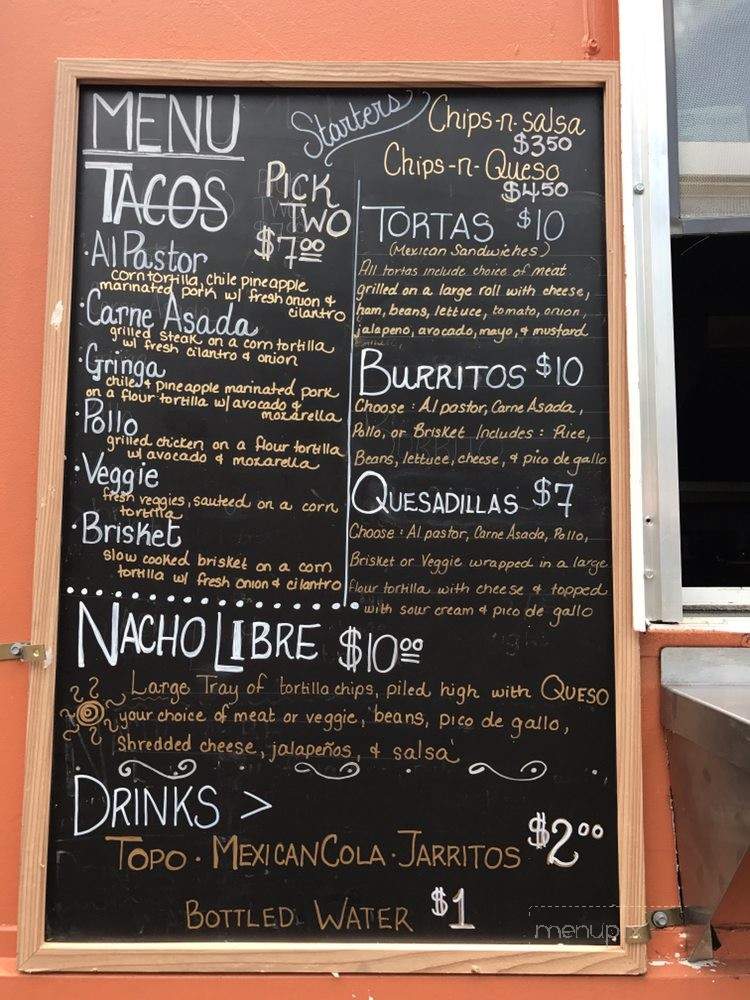 MENU
Starters
Chips-n-salsa
$3.50
Chips-n-Queso
$4.50
TACOS
PICK
TWO
$7.00
·Al Pastor
corn tortilla, chile pineapple
marinated pork w/ fresh onion &
cilantro
·Carne Asada
grilled steak on a corn tortilla
w/ fresh cilantro & onion
·Gringa
chile & pineapple marinated pork
on a flour tortilla w/ avocado &
mozarella
·Pollo
grilled chicken on a flour tortilla
w/ avocado & mozarella
·Veggie
fresh veggies, sauteed on a corn
tortilla
·Brisket
slow cooked brisket on a corn
tortilla w/ fresh onion & cilantro
TORTAS $10
(Mexican Sandwiches)
All tortas include choice of meat
grilled on a large roll with cheese,
ham, beans, lettuce, tomato, onion,
jalapeno, avocado, mayo, & mustard
BURRITOS $10
Choose : Al pastor, Carne Asada,
Pollo, or Brisket Includes : Rice,
Beans, lettuce, cheese, & pico de gallo
QUESADILLAS $7
Choose : Al pastor, Carne Asada, Pollo,
Brisket or Veggie wrapped in a large
flour tortilla with cheese & topped
with sour cream & pico de gallo
NACHO LIBRE $10.00
Large Tray of tortilla chips, piled high with QUESO
your choice of meat or veggie, beans, pico de gallo,
shredded cheese, jalapeños, & salsa
DRINKS >
TOPO · MEXICAN COLA · JARRITOS $2.00
BOTTLED WATER $1
menup